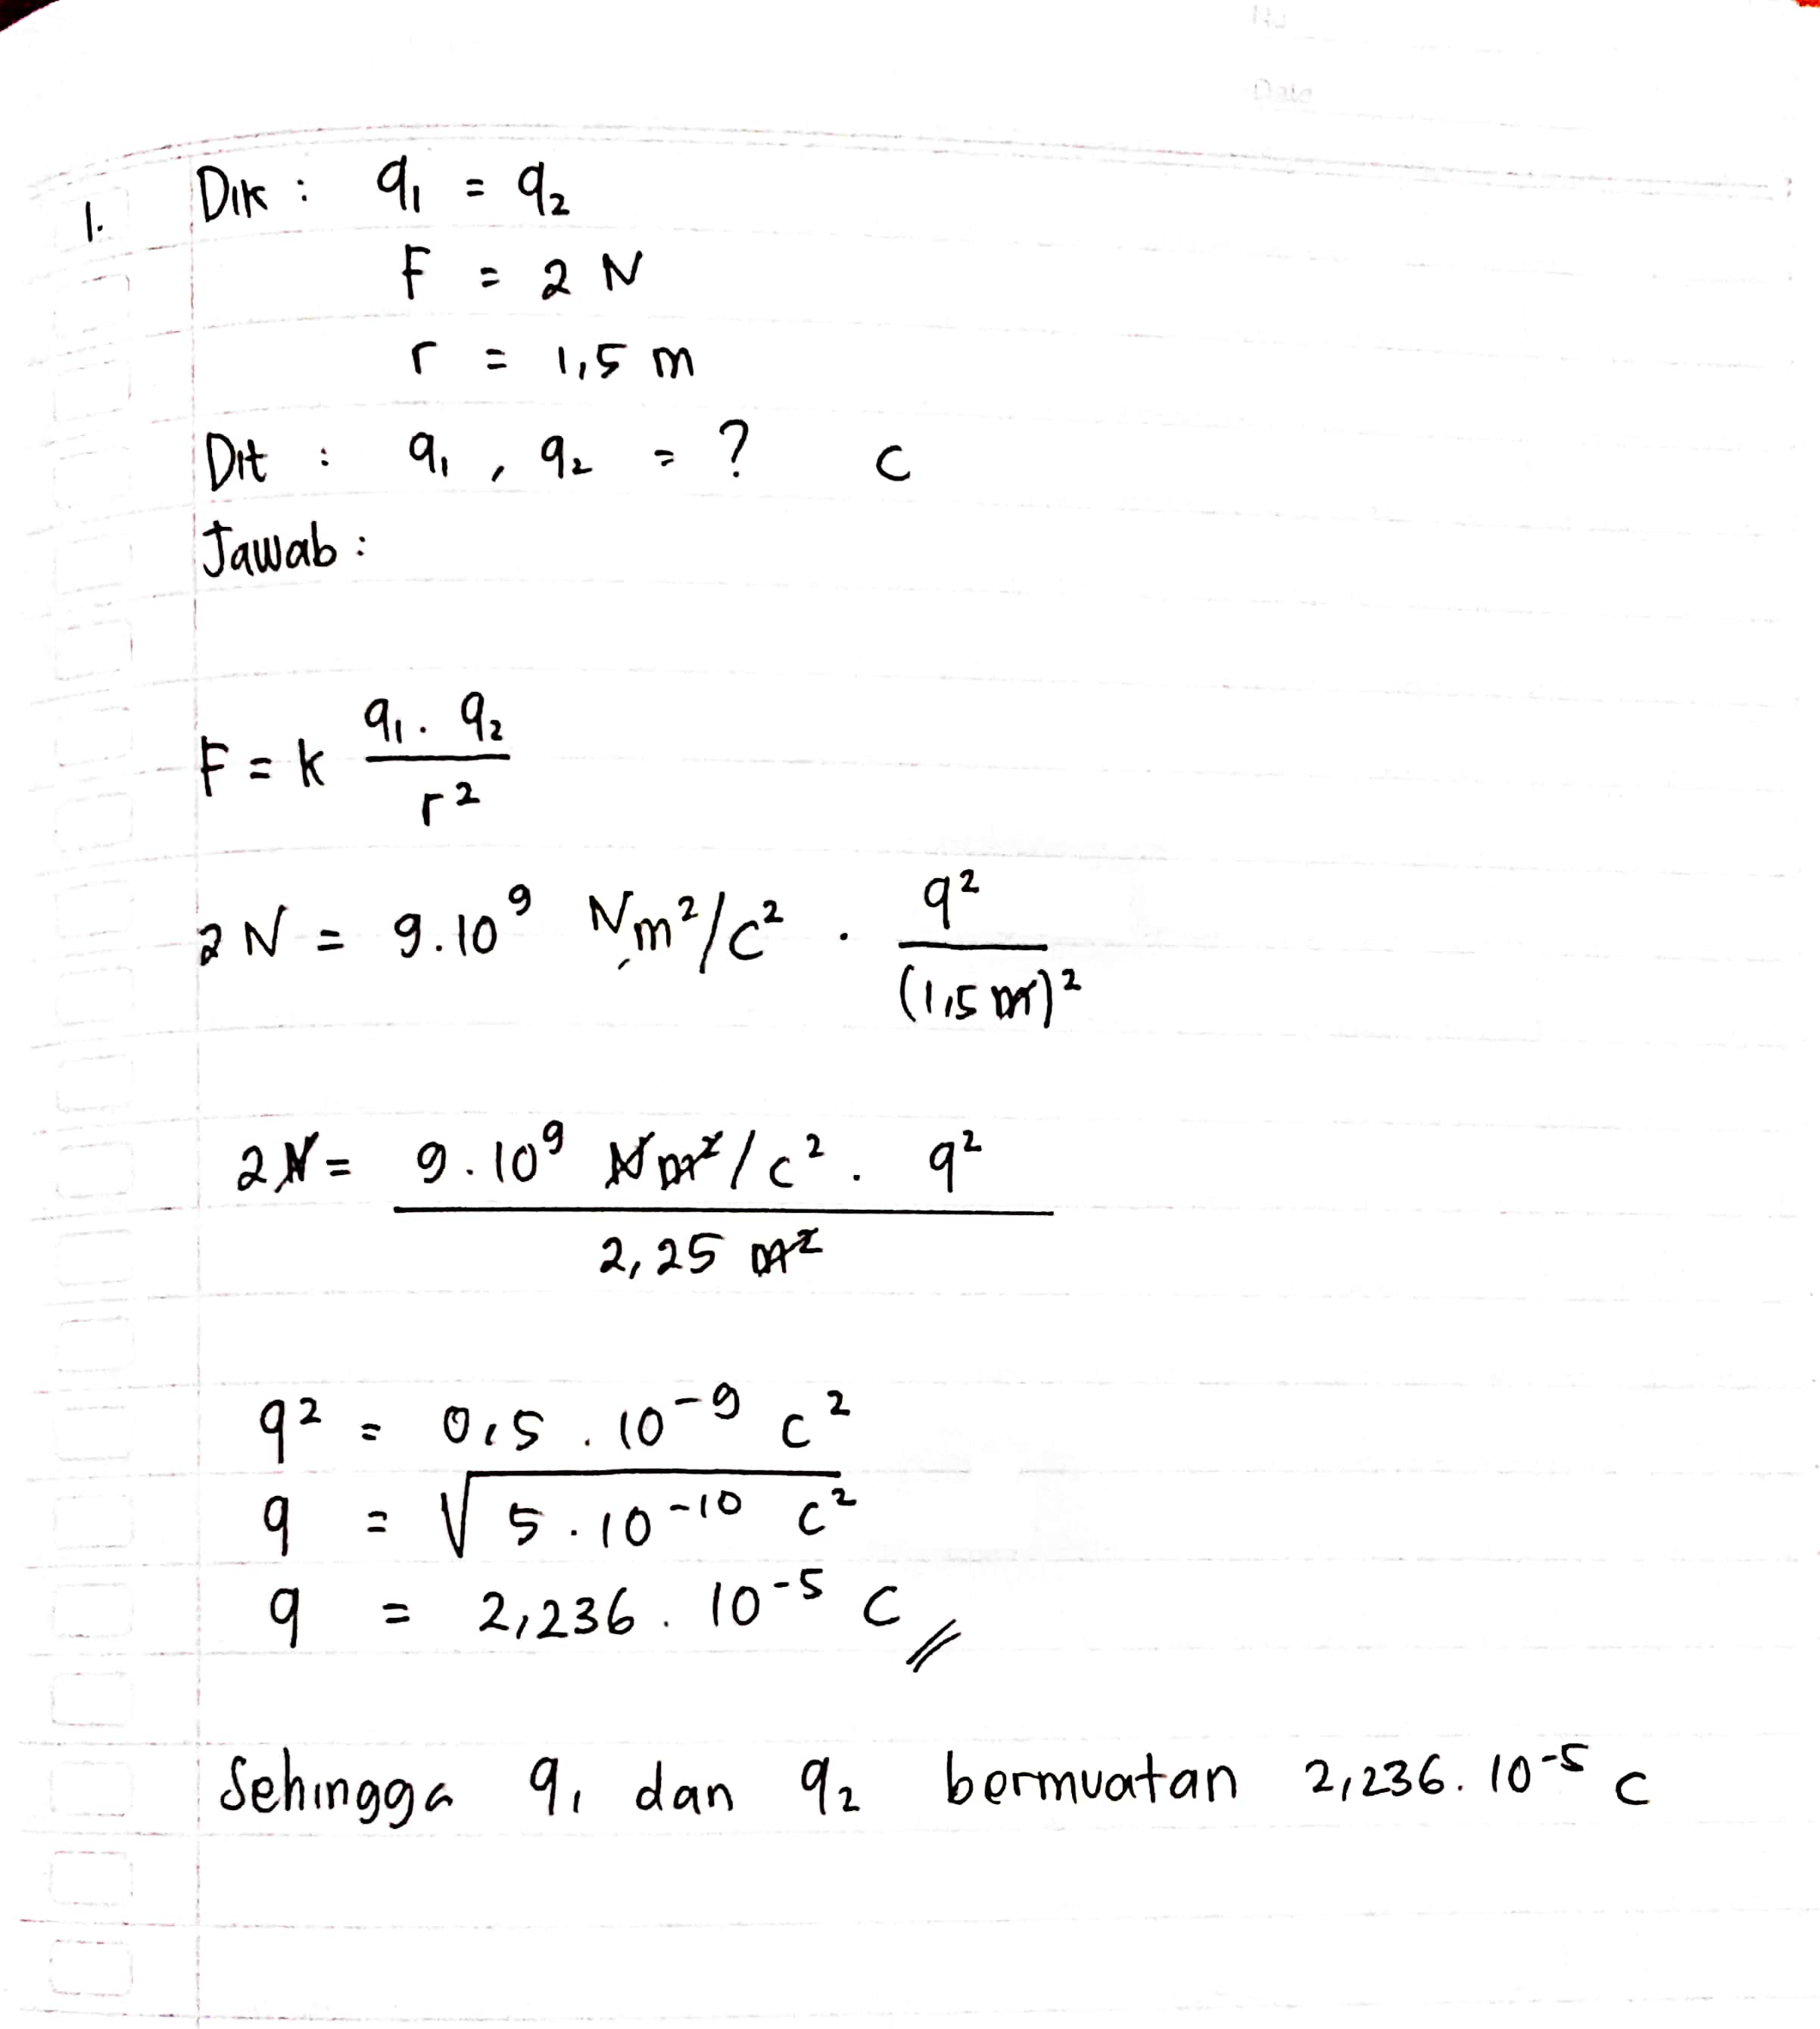 1. Dik : q₁ = q₂
F = 2 N
r = 1,5 m
Dit : q₁ , q₂ = ? C
Jawab :
F = k q₁ . q₂ / r²
2 N = 9.10⁹ Nm²/C² . q² / (1,5 m)²
2 N = 9.10⁹ Nm²/C² . q² / 2,25 m²
q² = 0,5 . 10⁻⁹ C²
q = √5 . 10⁻¹⁰ C²
q = 2,236 . 10⁻⁵ C //
Sehingga q₁ dan q₂ bermuatan 2,236 . 10⁻⁵ C